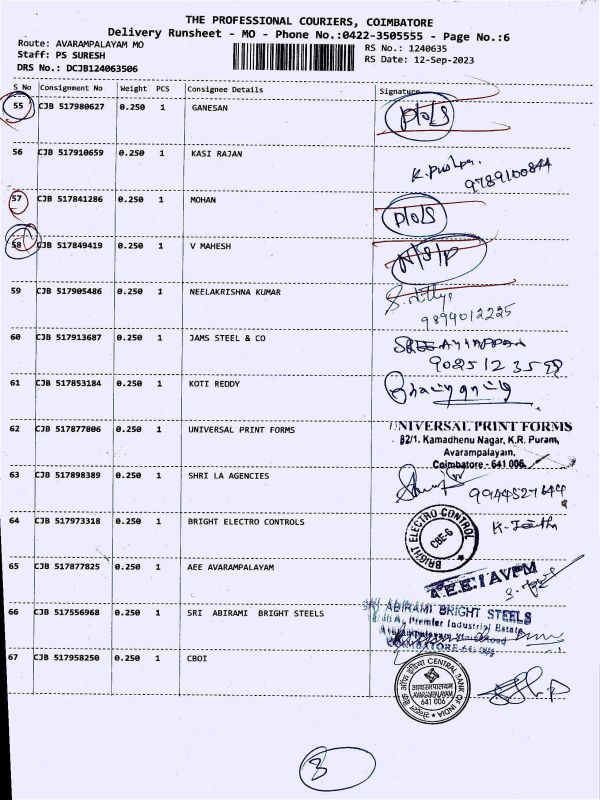 THE PROFESSIONAL COURIERS, COIMBATORE
Delivery Runsheet - MO - Phone No.:0422-3505555 - Page No.:6
Route: AVARAMPALAYAM MO
Staff: PS SURESH
DRS No.: DCJB124063506
RS No.: 1240635
RS Date: 12-Sep-2023
S No Consignment No Weight PCS Consignee Details Signature
55 CJB 517980627 0.250 1 GANESAN
56 CJB 517910659 0.250 1 KASI RAJAN
K. Pushpa.
9789100844
57 CJB 517841286 0.250 1 MOHAN
58 CJB 517849419 0.250 1 V MAHESH
59 CJB 517905486 0.250 1 NEELAKRISHNA KUMAR
9894012225
60 CJB 517913687 0.250 1 JAMS STEEL & CO
SREE AYYAPPAN
61 CJB 517853184 0.250 1 KOTI REDDY
62 CJB 517877806 0.250 1 UNIVERSAL PRINT FORMS
UNIVERSAL PRINT FORMS
82/1, Kamadhenu Nagar, K.R. Puram,
Avarampalayam,
Coimbatore - 641 006.
63 CJB 517898389 0.250 1 SHRI LA AGENCIES
9944527644
64 CJB 517973318 0.250 1 BRIGHT ELECTRO CONTROLS
BRIGHT ELECTRO CONTROL
CBE-6
65 CJB 517877825 0.250 1 AEE AVARAMPALAYAM
A.E.E./AVPM
66 CJB 517556968 0.250 1 SRI ABIRAMI BRIGHT STEELS
SRI ABIRAMI BRIGHT STEELS
Premier Industrial Estate
COIMBATORE
67 CJB 517958250 0.250 1 CBOI
CENTRAL BANK OF INDIA
AVARAMPALAYAM
641 006
8